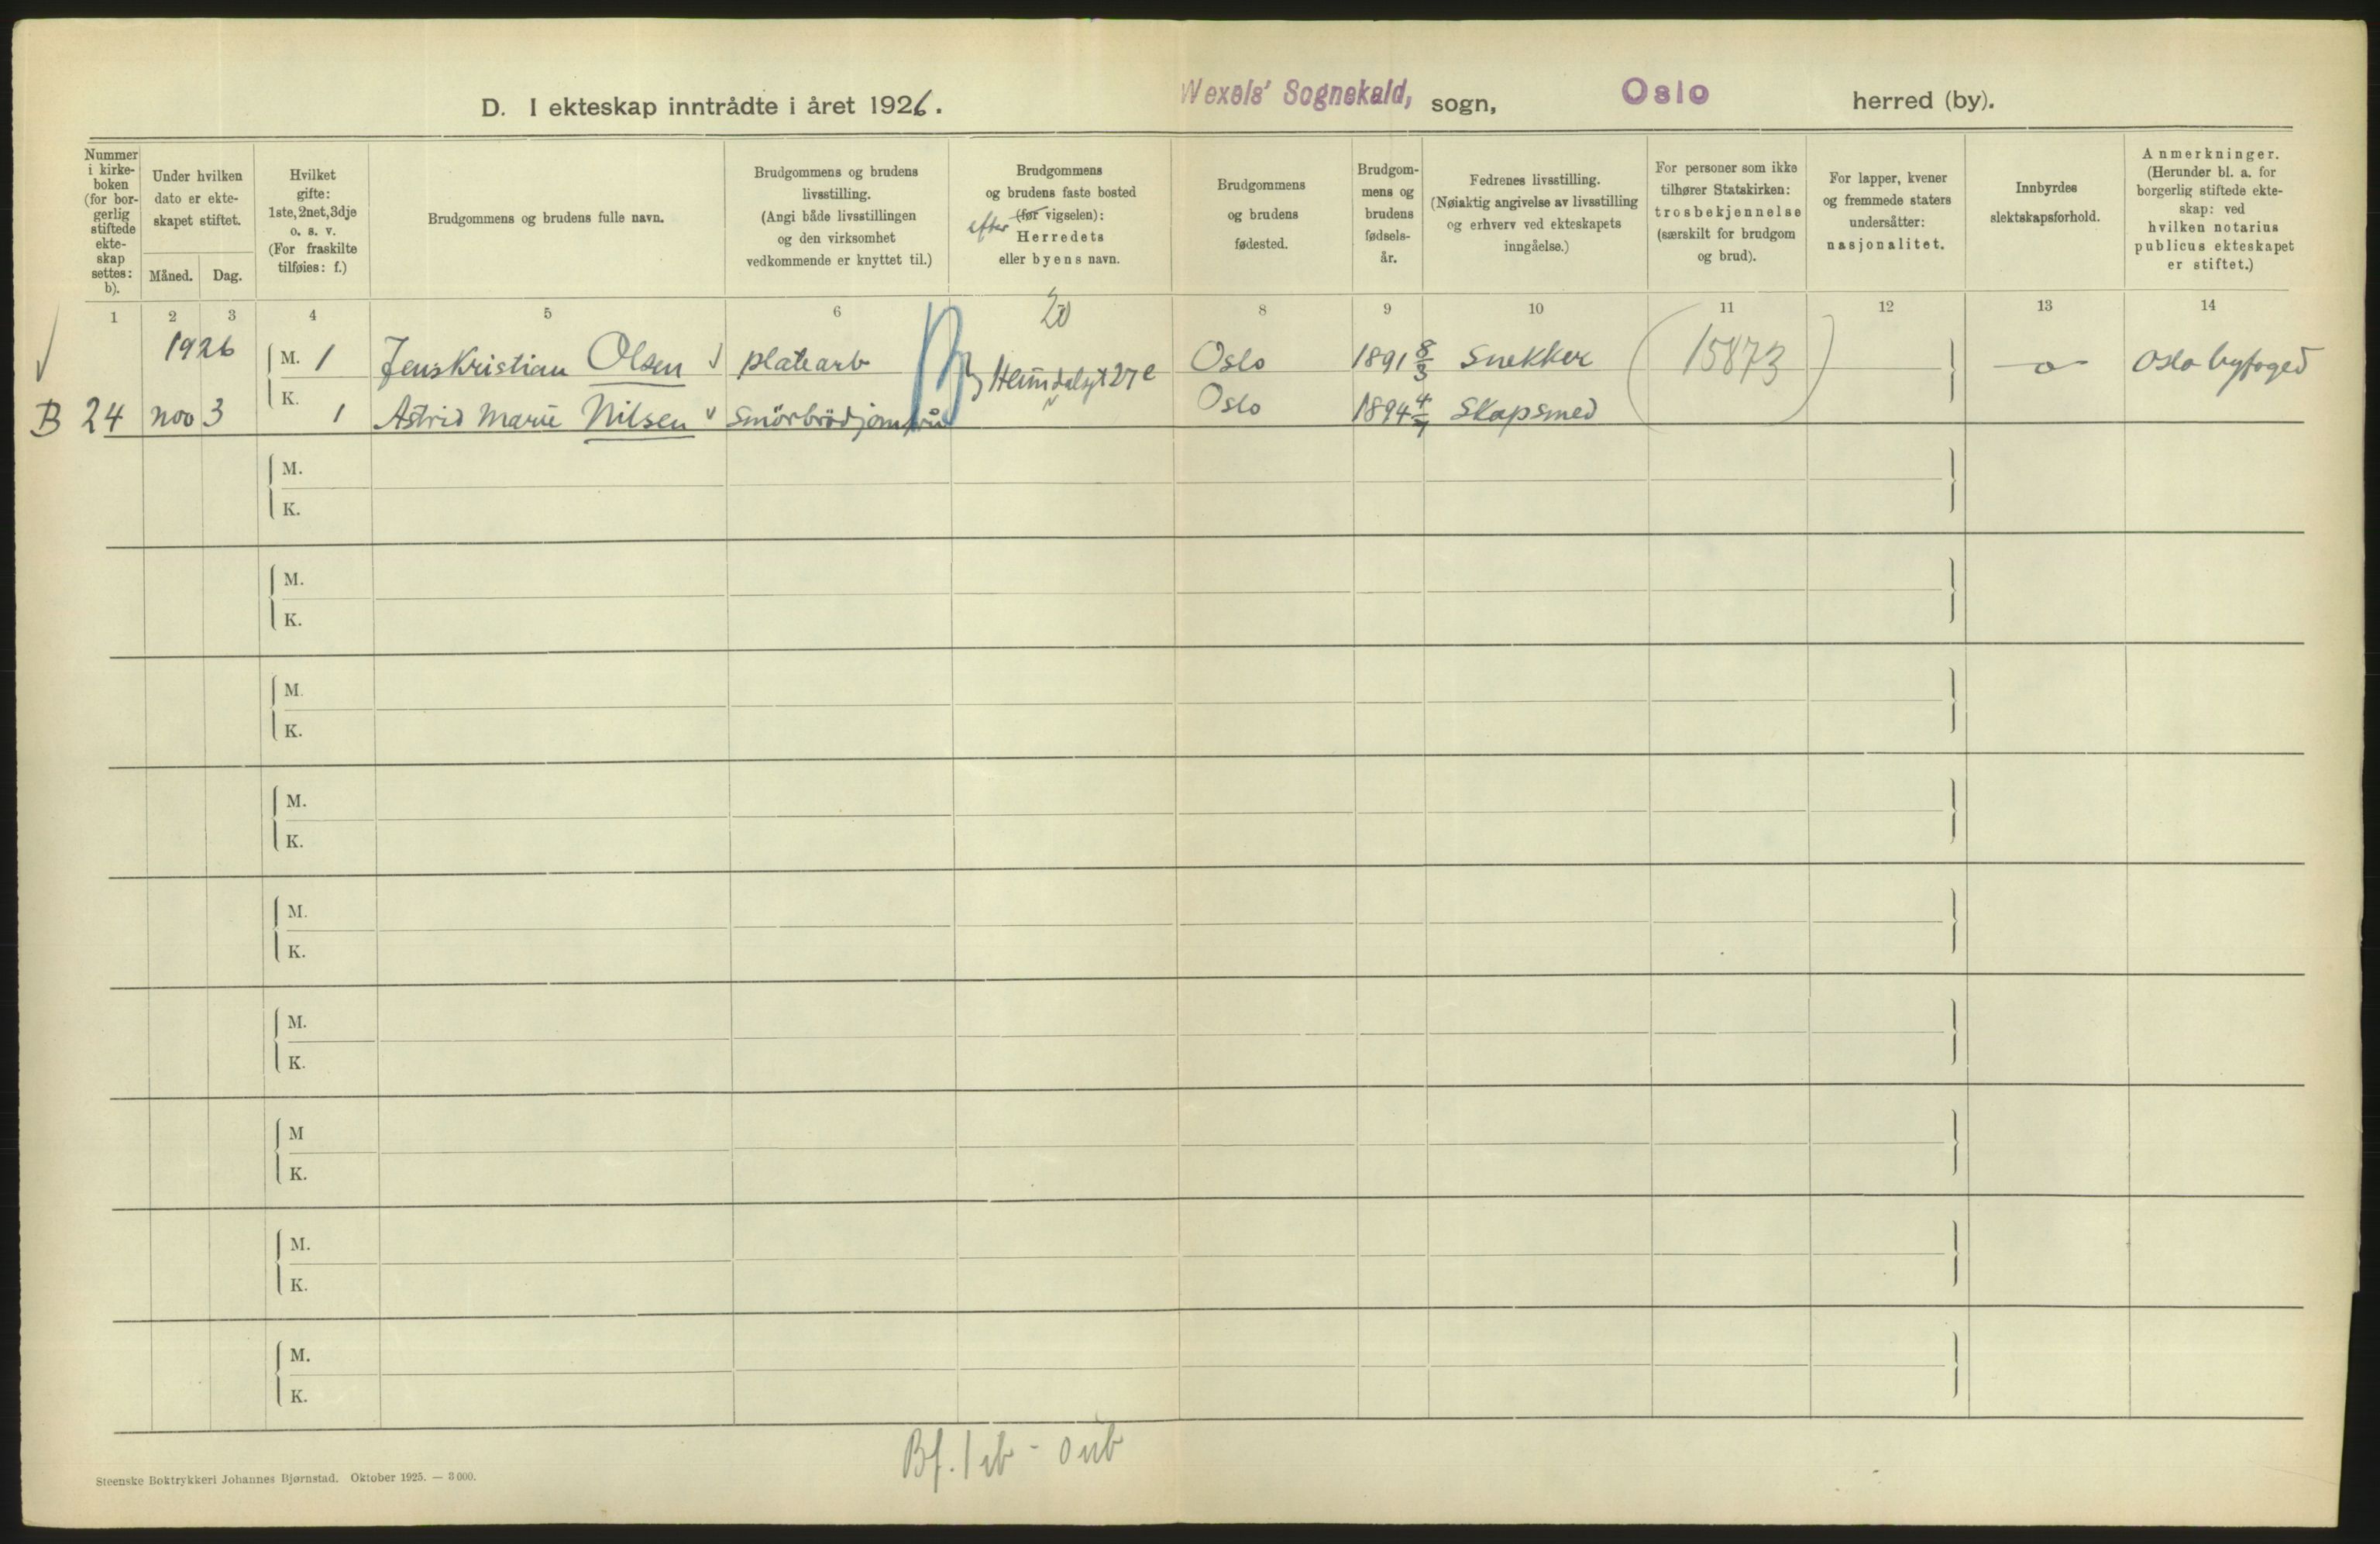 D. I ekteskap inntrådte i året 1926.
Wexels' Sognekald, sogn, Oslo herred (by).
Nummer
i kirke-
boken
(for bor-
gerlig
stiftede
ekte-
skap
settes:
b).
Under hvilken
dato er ekte-
skapet stiftet.
Måned. Dag.
Hvilket
gifte:
1ste, 2net, 3dje
o. s. v.
(For fraskilte
tilføies: f.)
Brudgommens og brudens fulle navn.
Brudgommens og brudens
livsstilling.
(Angi både livsstillingen
og den virksomhet
vedkommende er knyttet til.)
Brudgommens
og brudens faste bosted
efter (før vigselen):
Herredets
eller byens navn.
Brudgommens
og brudens
fødested.
Brudgom-
mens og
brudens
fødsels-
år.
Fedrenes livsstilling.
(Nøiaktig angivelse av livsstilling
og erhverv ved ekteskapets
inngåelse.)
For personer som ikke
tilhører Statskirken:
trosbekjennelse
(særskilt for brudgom
og brud).
For lapper, kvener
og fremmede staters
undersåtter:
nasjonalitet.
Innbyrdes
slektskapsforhold.
Anmerkninger.
(Herunder bl. a. for
borgerlig stiftede ekte-
skap: ved
hvilken notarius
publicus ekteskapet
er stiftet.)
1 2 3 4 5 6 20 8 9 10 11 12 13 14
1926 M. 1 Jens Kristian Olsen platearb Oslo 1891 8/3 Snekker (15873) -o- Oslo byfoged
Heimdalsgt 27e
B 24 nov 3 K. 1 Astrid Marie Nilsen smörbrödjomfru Oslo 1894 4/7 Skapsmed
M.
K.
M.
K.
M.
K.
M.
K.
M.
K.
M.
K.
M
K.
M.
K.
M.
K.
Bf. 1 ib - 0 ub
Steenske Boktrykkeri Johannes Bjørnstad. Oktober 1925. — 3 000.